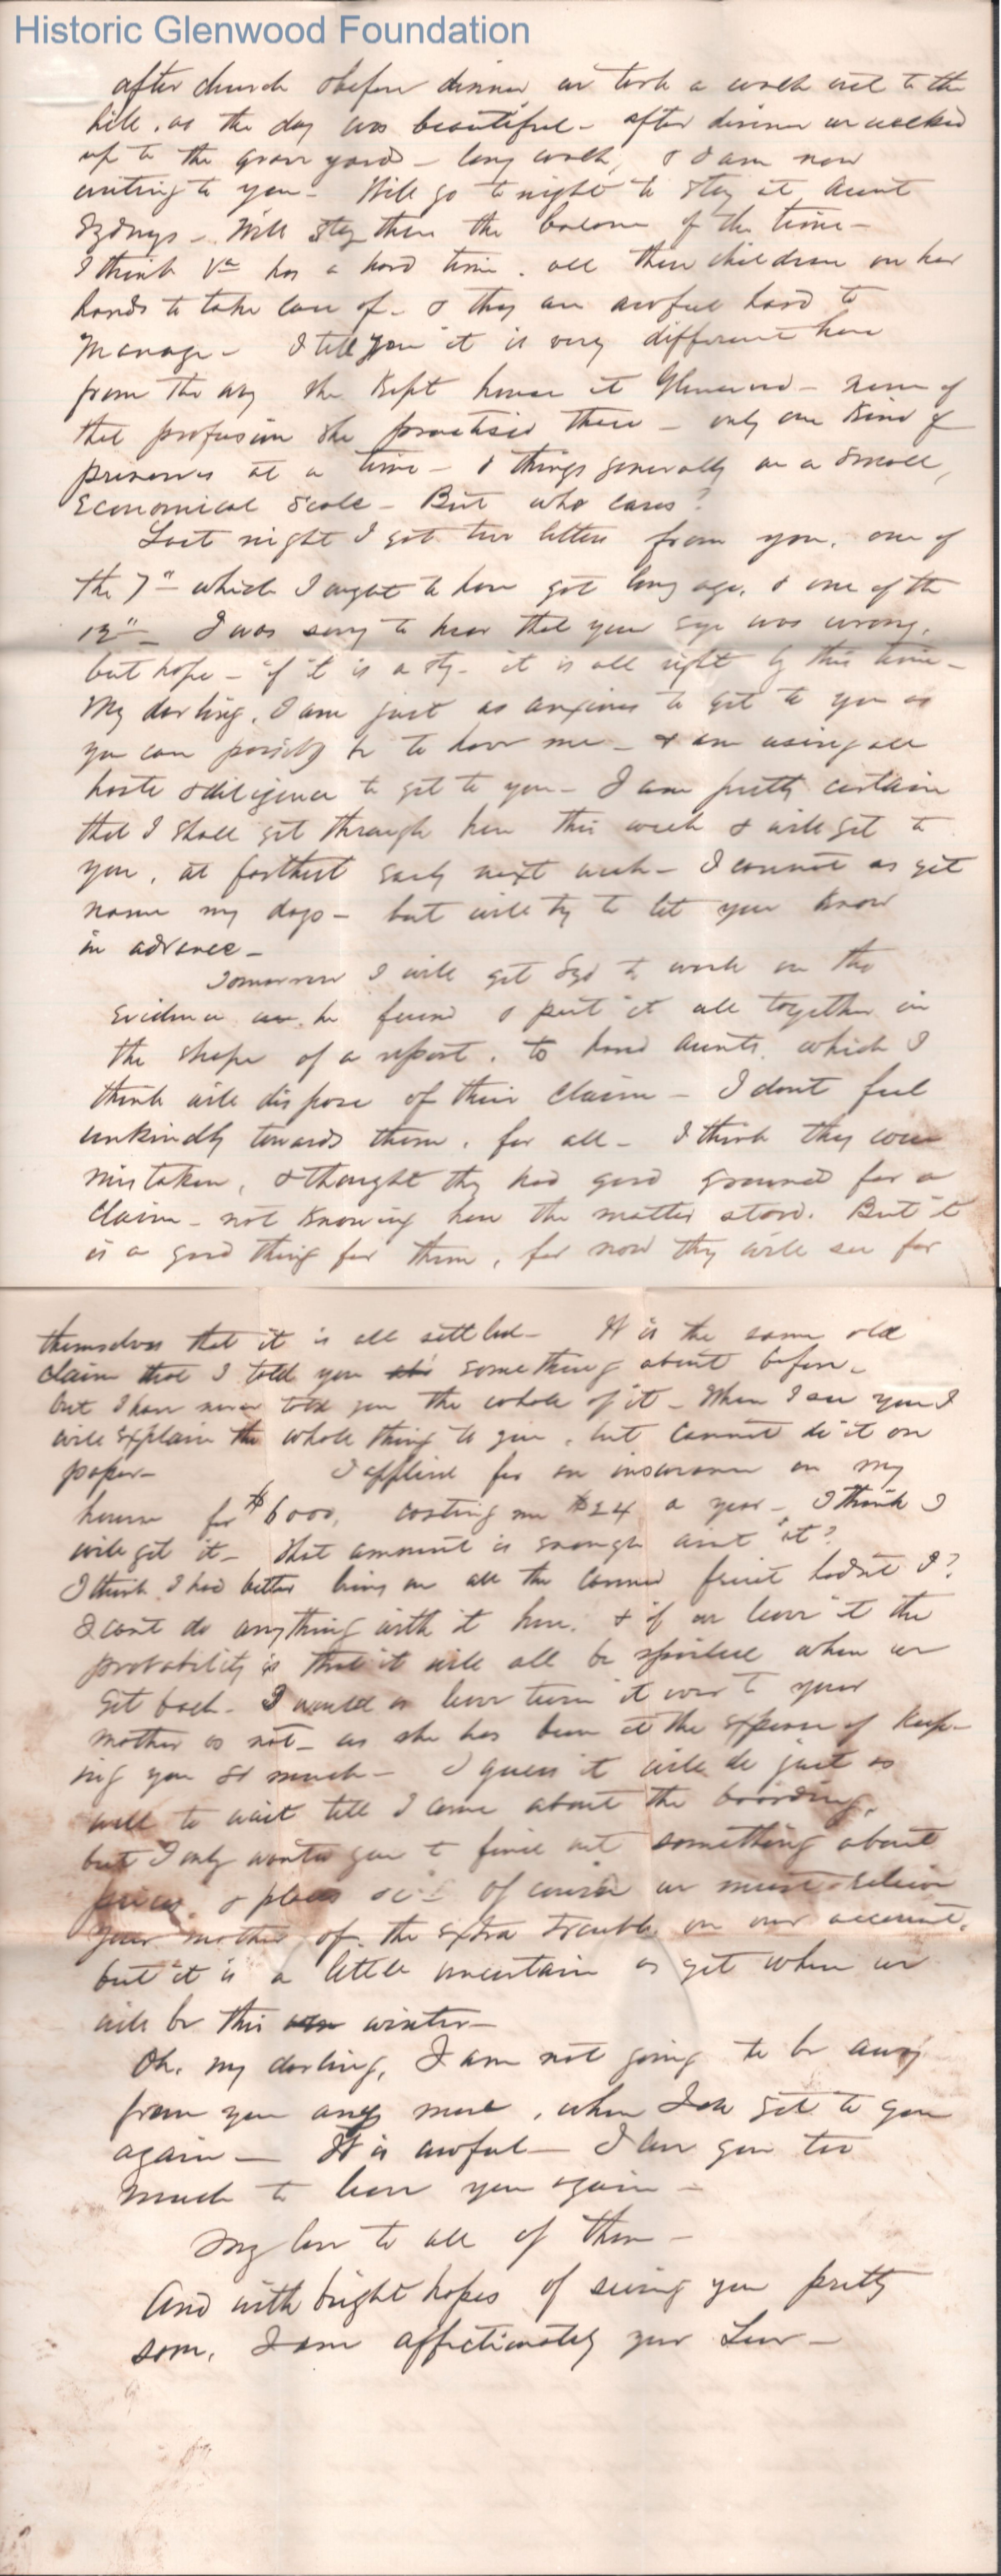 Historic Glenwood Foundation
after church & before dinner we took a walk out to the
hill, as the day was beautiful - after dinner we walked
up to the grave yard - long walk, & I am now
writing to you - Will go to night to stay at Aunt
Sydneys - Will stay there the balance of the time -
I think Va has a hard time, all these children on her
hands to take care of - & they are awful hard to
manage - I tell you it is very different here
from the way she kept house at Glenwood - none of
that profusion she practised there - only one kind of
preserves at a time - & things generally on a small,
economical scale - But who cares?
Last night I got two letters from you, one of
the 7" which I ought to have got long ago, & one of the
12" I was sorry to hear that your eye was wrong,
but hope - if it is a sty - it is all right by this time -
My darling, I am just as anxious to get to you as
you can possibly be to have me - & am using all
haste & diligence to get to you - I am pretty certain
that I shall get through here this week & will get to
you, at farthest early next week - I cannot as yet
name my days - but will try to let you know
in advance -
Tomorrow I will get Syd to work on the
evidence he found & put it all together in
the shape of a report, to hand Aunts, which I
think will dispose of their claim - I dont feel
unkindly towards them, for all - I think they were
mistaken, & thought they had good ground for a
claim - not knowing how the matter stood. But it
is a good thing for them, for now they will see for
themselves that it is all settled - It is the same old
claim that I told you something about before -
but I have never told you the whole of it - When I see you I
will explain the whole thing to you, but cannot do it on
paper - I applied for an insurance on my
house for $6000, costing me $24 a year - I think I
will get it - that amount is enough aint it?
I think I had better bring on all the canned fruit hadnt I?
I cant do anything with it here, & if we leave it the
probability is that it will all be spoiled when we
get back - I would as leave turn it over to your
mother as not - as she has been at the expense of keep-
ing you so much - I guess it will do just as
well to wait till I come about the boarding,
but I only wanted you to find out something about
prices, & places &c - of course we must relieve
your mother of the extra trouble on our account,
but it is a little uncertain as yet where we
will be this winter -
Oh, my darling, I am not going to be away
from you any more, when I get to you
again - It is awful - I love you too
much to leave you again -
My love to all of them -
And with bright hopes of seeing you pretty
soon, I am affectionately your Lew -